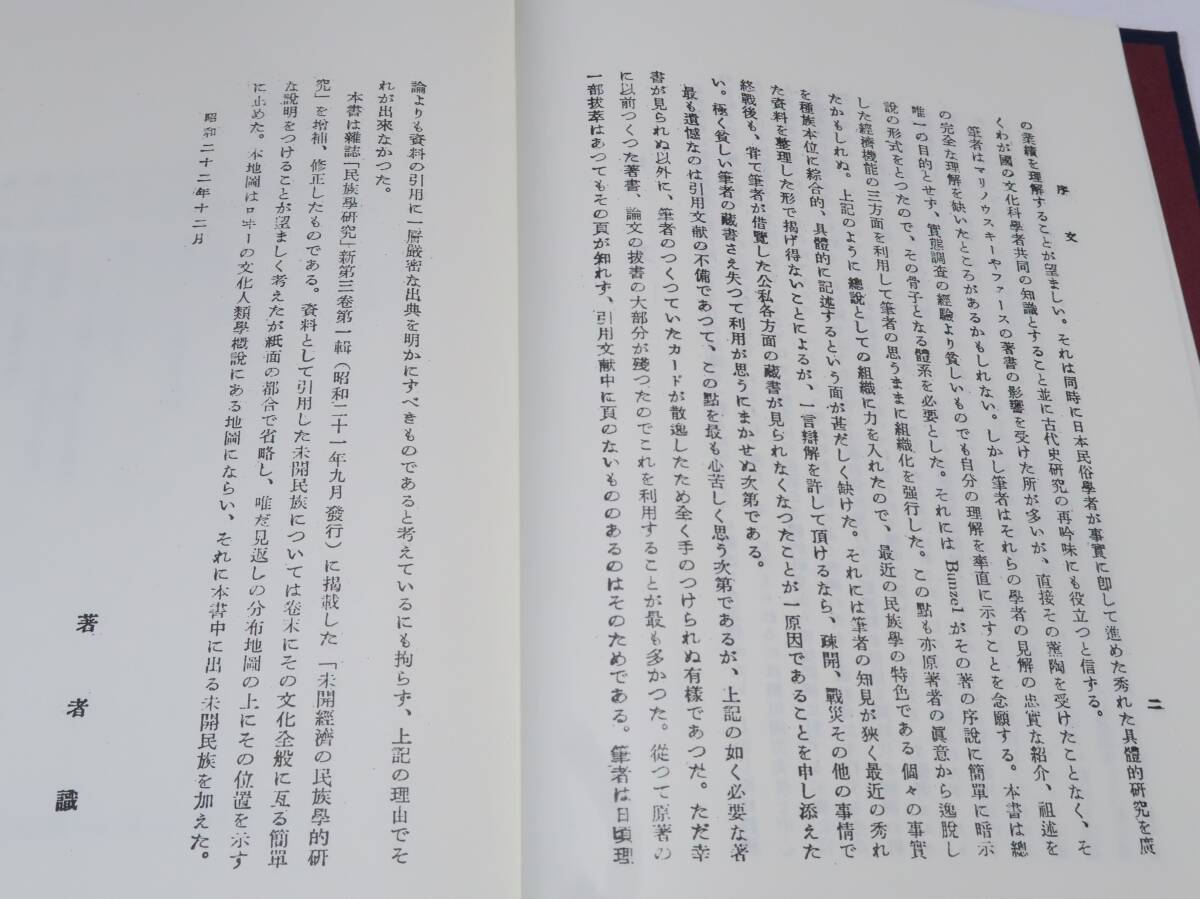 序文
二
の業績を理解することが望ましい。それは同時に日本民俗學者が事實に卽して進めた秀れた具體的研究を廣
くわが國の文化科學者共同の知識とすること並に古代史研究の再吟味にも役立つと信ずる。
筆者はマリノウスキーやファースの著書の影響を受けた所が多いが、直接その薫陶を受けたことなく、そ
の完全な理解を缺いたところがあるかもしれない。しかし筆者はそれらの學者の見解の忠實な紹介、祖述を
唯一の目的とせず、實態調査の經驗より貧しいものでも自分の理解を率直に示すことを念願する。本書は總
說の形式をとつたので、その骨子となる體系を必要とした。それには Bunzel がその著の序說に簡單に暗示
した經濟機能の三方面を利用して筆者の思うままに組織化を强行した。この點も亦原著者の眞意から逸脫し
たかもしれぬ。上記のように總說としての組織に力を入れたので、最近の民族學の特色である個々の事實
を種族本位に綜合的、具體的に記述するという面が甚だしく缺けた。それには筆者の知見が狹く最近の秀れ
た資料を整理した形で揭げ得ないことによるが、一言辯解を許して頂けるなら、疎開、戰災その他の事情で
終戰後も、甞て筆者が借覽した公私各方面の藏書が見られなくなつたことが一原因であることを申し添えた
い。極く貧しい筆者の藏書さえ失つて利用が思うにまかせぬ次第である。
最も遺憾なのは引用文献の不備であつて、この點を最も心苦しく思う次第であるが、上記の如く必要な著
書が見られぬ以外に、筆者のつくつていたカードが散逸したため全く手のつけられぬ有樣であつた。ただ幸
に以前つくつた著書、論文の拔書の大部分が殘つたのでこれを利用することが最も多かつた。從つて原著の
一部拔萃はあつてもその頁が知れず、引用文献中に頁のないもののあるのはそのためである。筆者は日頃理
論よりも資料の引用に一層嚴密な出典を明かにすべきものであると考えているにも拘らず、上記の理由でそ
れが出來なかつた。
本書は雜誌「民族學硏究」新第三卷第一輯（昭和二十一年九月發行）に揭載した「未開經濟の民族學的研
究」を增補、修正したものである。資料として引用した未開民族については卷末にその文化全般に亙る簡單
な說明をつけることが望ましく考えたが紙面の都合で省略し、唯だ見返しの分布地圖の上にその位置を示す
に止めた。本地圖はロオーの文化人類學槪說にある地圖にならい、それに本書中に出る未開民族を加えた。
昭和二十二年十二月
著者識